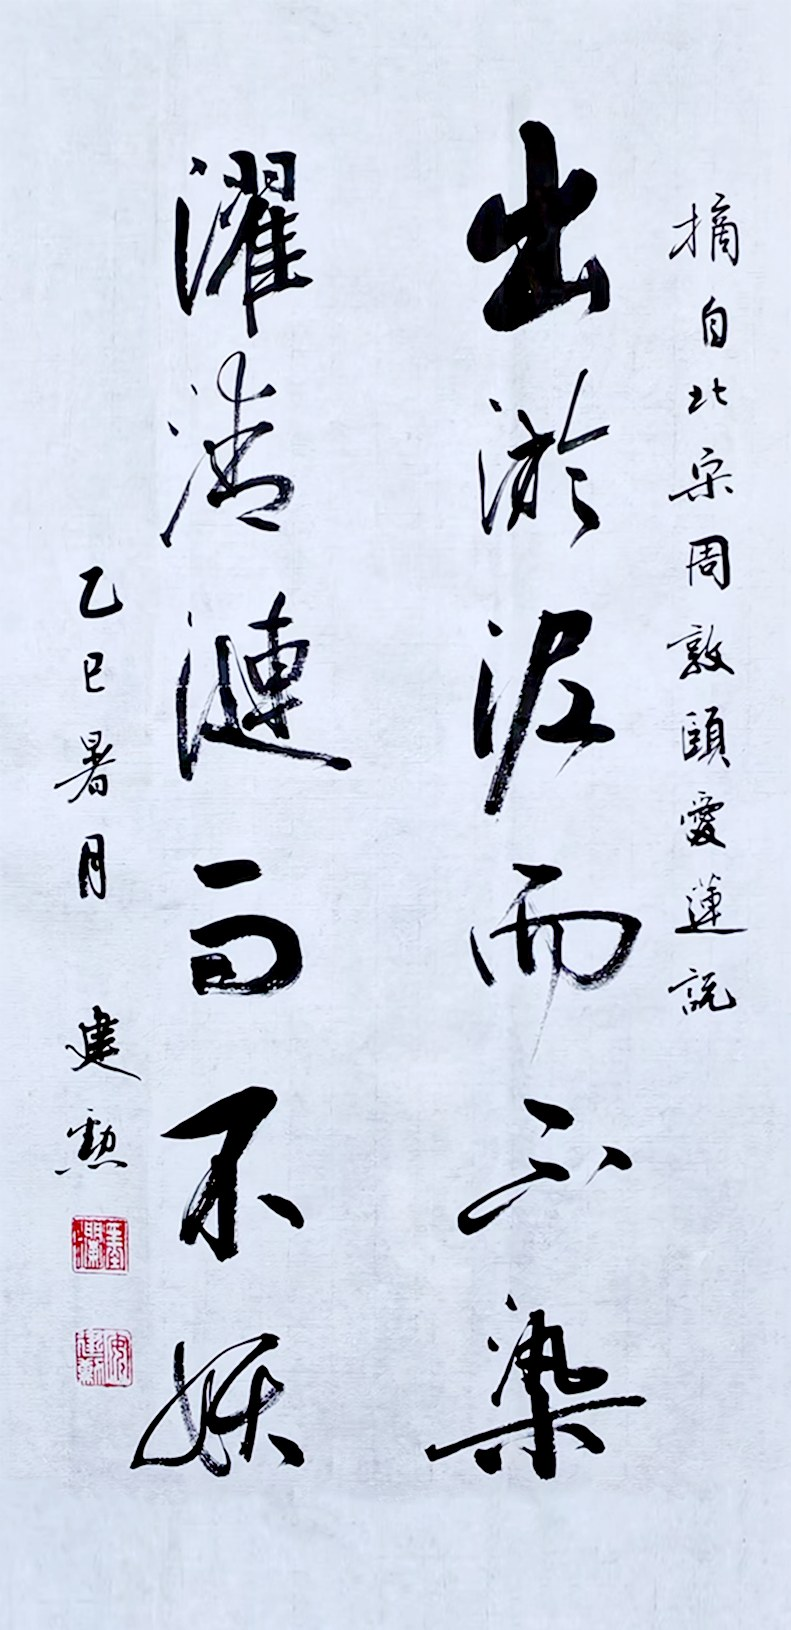 摘自北宋周敦頤愛蓮説
出淤泥而不染
濯清漣而不妖
乙巳暑月
建勲